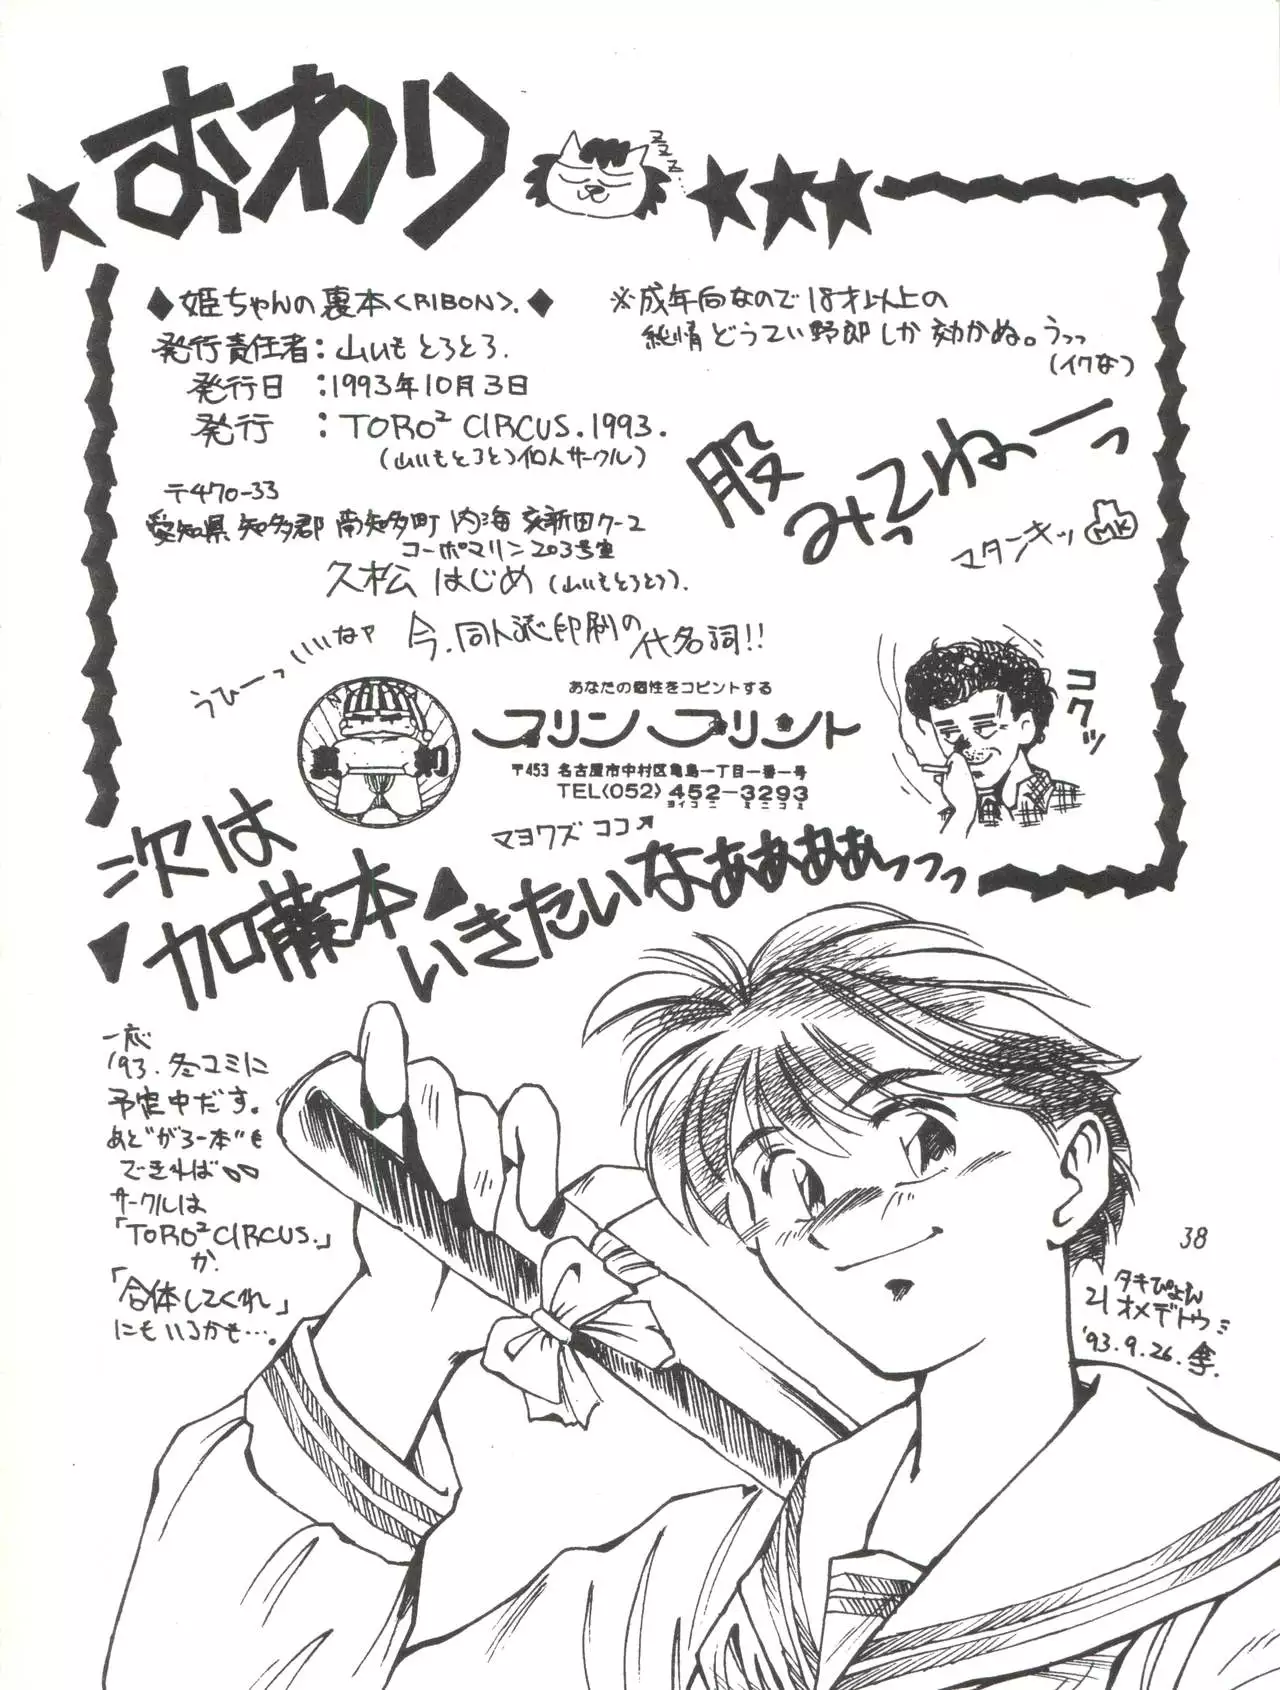 おわり
zzz
◆姫ちゃんの裏本<RIBON>.◆
発行責任者:山いもとろとろ.
発行日:1993年10月3日
発行:TORO² CIRCUS.1993.
(山いもとろとろ個人サークル)
〒470-33
愛知県 知多郡 南知多町 内海
コーポマリン203号室
久松 はじめ(山いもとろとろ).
※成年向なので18才以上の
純情どうてい野郎しか効かぬ。うっっ
(イクな)
股
みってねーっ
マターンキッ
MK
うひーっいいなァ
今、同人誌印刷の
代名詞!!
あなたの個性をコピントする
プリンプリント
〒453 名古屋市中村区亀島一丁目一番一号
TEL(052)452-3293
ヨイコニ ミニコミ
マヨワズ ココ↗
コクッ
次は
▼加藤本▲
いきたいなぁぁぁぁぁっっっ
一応
'93.冬コミに
予定中だす。
あと"がろー本"も
できれば∞
サークルは
「TORO² CIRCUS.」
か
「合体してくれ」
にもいるかも…。
38
タキぴょん
21オメデトウ
'93.9.26.